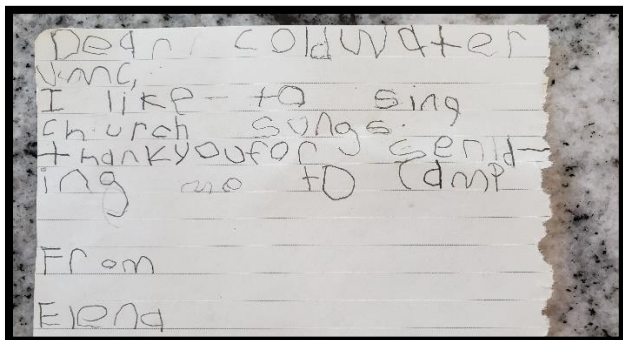 Dear Coldwater
UMC,
I like to sing
church songs.
thankyoufor send-
ing me to camp
From
Elena